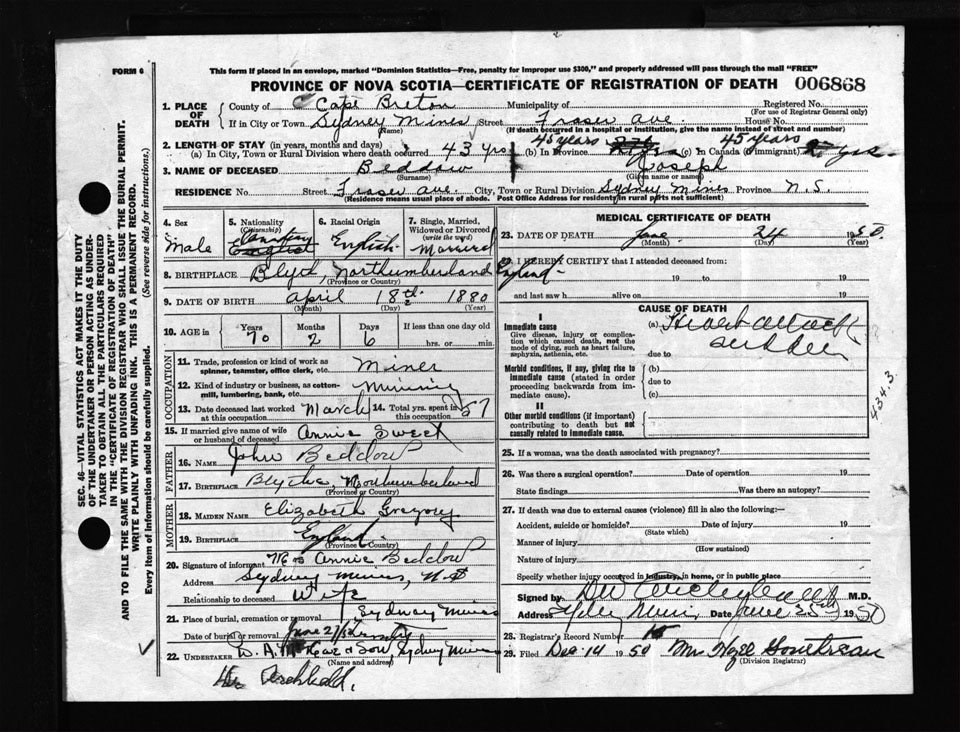 FORM 6
This form if placed in an envelope, marked "Dominion Statistics—Free, penalty for improper use $300," and properly addressed will pass through the mail "FREE"
PROVINCE OF NOVA SCOTIA—CERTIFICATE OF REGISTRATION OF DEATH 006868
1. PLACE OF DEATH
County of Cape Breton Municipality of Registered No.
(For use of Registrar General only)
If in City or Town Sydney Mines Street Fraser Ave. House No.
(Name) (If death occurred in a hospital or institution, give the name instead of street and number)
2. LENGTH OF STAY (in years, months and days)
(a) In City, Town or Rural Division where death occurred 43 yrs (b) In Province 45 years (c) In Canada (if immigrant) 45 years yrs.
3. NAME OF DECEASED Beddow Joseph
(Surname) (Given name or names)
RESIDENCE No. Street Fraser Ave. City, Town or Rural Division Sydney Mines Province N.S.
(Residence means usual place of abode. Post Office Address for residents in rural parts not sufficient)
4. Sex Male
5. Nationality (Citizenship)
6. Racial Origin English
7. Single, Married, Widowed or Divorced (write the word) Married
8. BIRTHPLACE Blyth, Northumberland England
(Province or Country)
9. DATE OF BIRTH April 18th 1880
(Month) (Day) (Year)
10. AGE in Years 70 Months 2 Days 6 If less than one day old hrs. or min.
OCCUPATION
11. Trade, profession or kind of work as spinner, teamster, office clerk, etc. Miner
12. Kind of industry or business, as cotton-mill, lumbering, bank, etc. Mining
13. Date deceased last worked at this occupation March 14. Total yrs. spent in this occupation 57
15. If married give name of wife or husband of deceased Annie Sweet
FATHER
16. NAME John Beddow
17. BIRTHPLACE Blythe, Northumberland
(Province or Country)
MOTHER
18. MAIDEN NAME Elizabeth Gregory
19. BIRTHPLACE England
(Province or Country)
20. Signature of informant Mrs Annie Beddow
Address Sydney Mines, N S
Relationship to deceased Wife
21. Place of burial, cremation or removal Sydney Mines
Date of burial or removal June
22. UNDERTAKER & Son, Sydney Mines
(Name and address)
Dr. Archibald.
MEDICAL CERTIFICATE OF DEATH
23. DATE OF DEATH June 24 1950.
(Month) (Day) (Year)
I HEREBY CERTIFY that I attended deceased from:
19 to 19
and last saw h alive on 19
CAUSE OF DEATH
I
Immediate cause
Give disease, injury or complication which caused death, not the mode of dying, such as heart failure, asphyxia, asthenia, etc.
(a) Heart attack
sudden
due to
Morbid conditions, if any, giving rise to immediate cause (stated in order proceeding backwards from immediate cause).
(b)
due to
(c)
II
Other morbid conditions (if important) contributing to death but not causally related to immediate cause.
434.3
25. If a woman, was the death associated with pregnancy?
26. Was there a surgical operation? Date of operation 19
State findings Was there an autopsy?
27. If death was due to external causes (violence) fill in also the following:—
Accident, suicide or homicide? Date of injury 19
(State which)
Manner of injury
(How sustained)
Nature of injury
Specify whether injury occurred in industry, in home, or in public place
Signed by M.D.
Address Date June 25th 1950
28. Registrar's Record Number
29. Filed Dec. 14 1950 Mrs Hazel
(Division Registrar)
SEC. 46—VITAL STATISTICS ACT MAKES IT THE DUTY
OF THE UNDERTAKER OR PERSON ACTING AS UNDER-
TAKER TO OBTAIN ALL THE PARTICULARS REQUIRED
IN THE "CERTIFICATE OF REGISTRATION OF DEATH"
AND TO FILE THE SAME WITH THE DIVISION REGISTRAR WHO SHALL ISSUE THE BURIAL PERMIT.
WRITE PLAINLY WITH UNFADING INK. THIS IS A PERMANENT RECORD.
Every item of information should be carefully supplied. (See reverse side for instructions.)